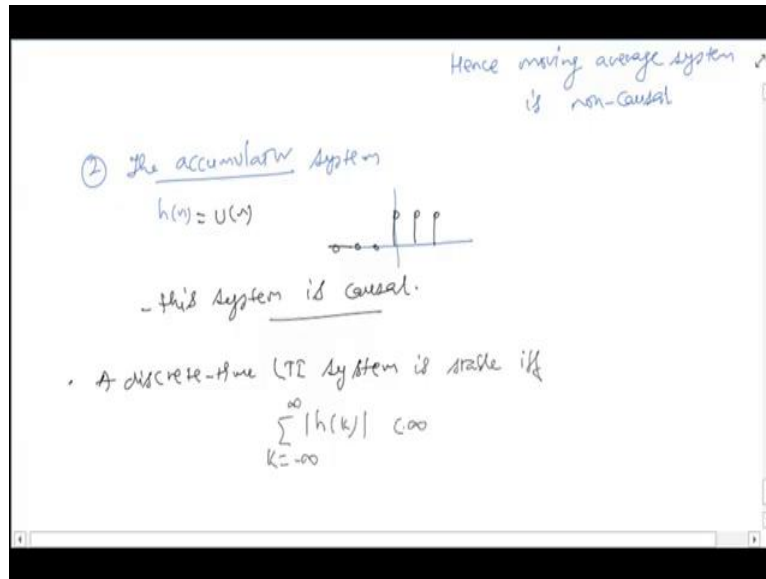 Hence moving average system
is non-causal
② The accumulator system
h(n) = U(n)
- this system is causal.
. A discrete-time LTI system is stable iff
∞
∑ |h(k)| < ∞
k=-∞